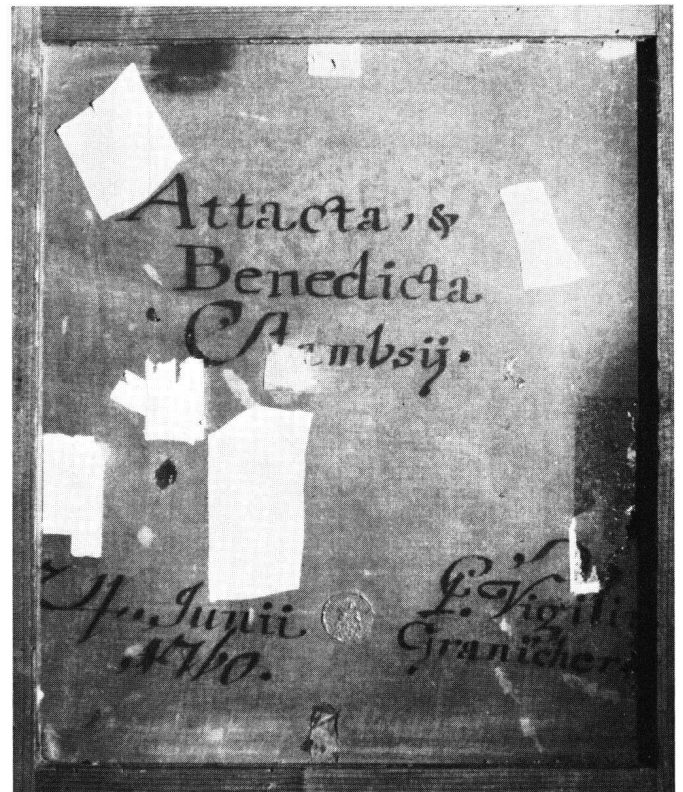 Attacta, &
Benedicta
24. Junii
1760.
P. Vigili
Granicher.